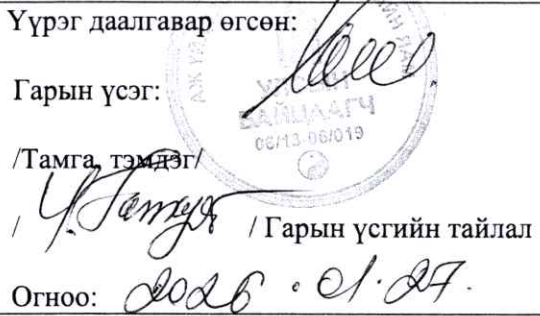 Үүрэг даалгавар өгсөн:
Гарын үсэг:
БАЙЦААГЧ
06/13-06/019
/Тамга, тэмдэг/
/ / Гарын үсгийн тайлал
Огноо: 2026.01.27.